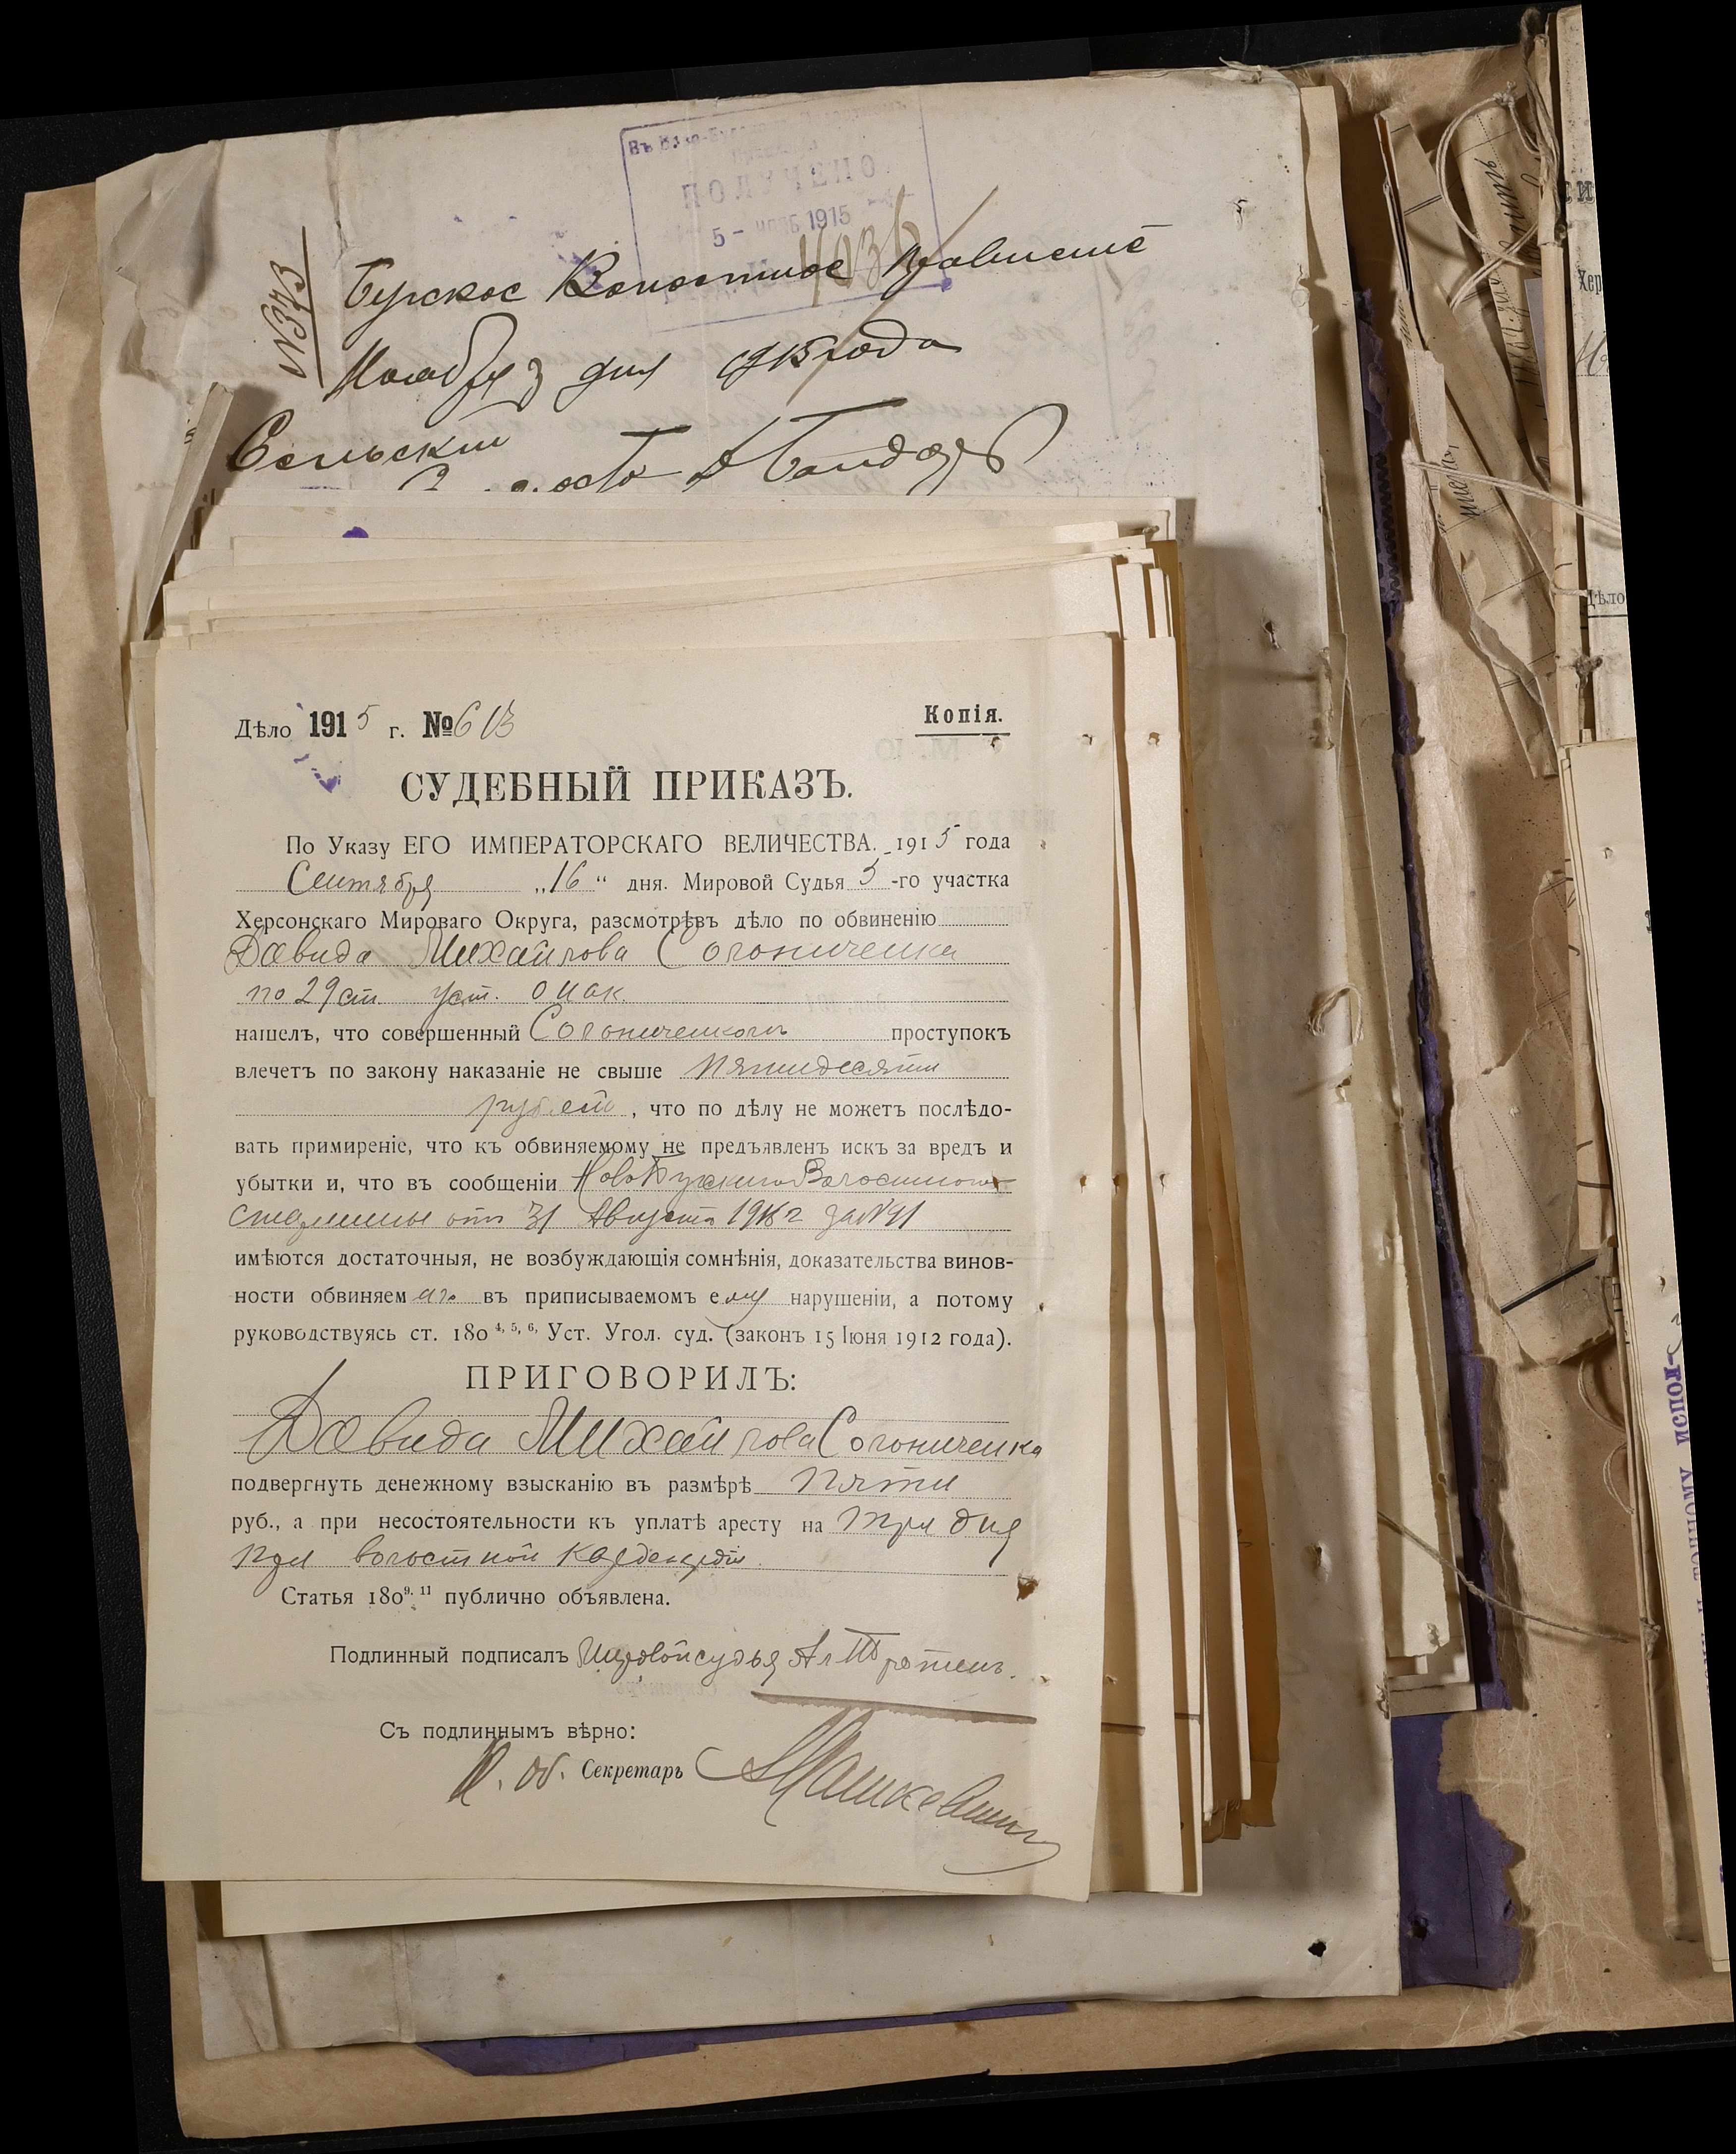 ПОЛУЧЕНО
5 - нояб 1915
№373
Бугское Волостное Правленіе
Ноября 3 дня 1915 года
Сельскій
Дѣло 1915 г. № 613
Копія.
СУДЕБНЫЙ ПРИКАЗЪ.
По Указу ЕГО ИМПЕРАТОРСКАГО ВЕЛИЧЕСТВА. 1915 года
Сентября „16“ дня. Мировой Судья 5-го участка
Херсонскаго Мироваго Округа, разсмотрѣвъ дѣло по обвиненію
Давида Михайлова Согониченка
по 29 ст. Уст. о нак.
нашелъ, что совершенный Согониченкомъ проступокъ
влечетъ по закону наказаніе не свыше пятидесяти
рублей, что по дѣлу не можетъ послѣдо-
вать примиреніе, что къ обвиняемому не предъявленъ искъ за вредъ и
убытки и, что въ сообщеніи Ново Бугскаго Волостного
старшины отъ 31 Августа 1915 г за №41
имѣются достаточныя, не возбуждающія сомнѣнія, доказательства винов-
ности обвиняемаго въ приписываемомъ ему нарушеніи, а потому
руководствуясь ст. 180 4, 5, 6, Уст. Угол. суд. (законъ 15 Іюня 1912 года).
ПРИГОВОРИЛЪ:
Давида Михайлова Согониченка
подвергнуть денежному взысканію въ размѣрѣ пяти
руб., а при несостоятельности къ уплатѣ аресту на три дня
при волостной
Статья 180 9, 11 публично объявлена.
Подлинный подписалъ Мировой судья
Съ подлиннымъ вѣрно:
И. об. Секретарь